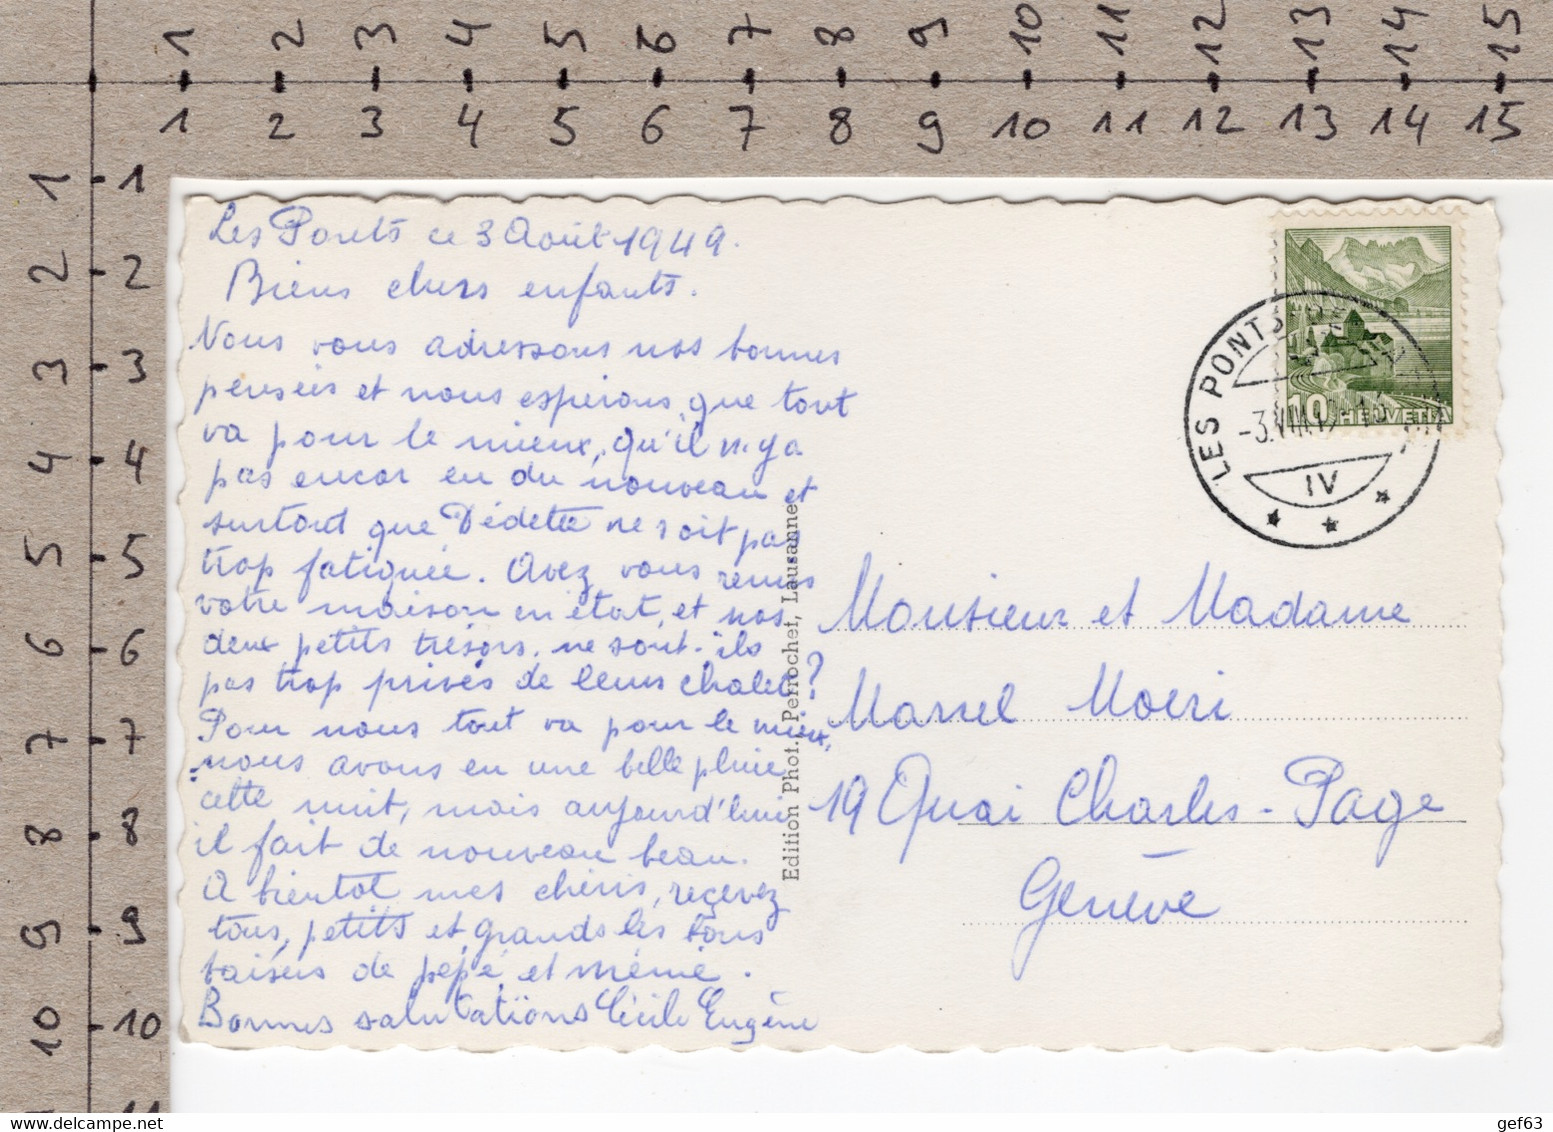 1 2 3 4 5 6 7 8 9 10 11 12 13 14 15
1 2 3 4 5 6 7 8 9 10 11 12 13 14 15
1 1
2 2
3 3
4 4
5 5
6 6
7 7
8 8
9 9
10 10
11
Les Ponts ce 3 Août 1949.
Biens chers enfants.
Nous vous adressons nos bonnes
pensées et nous esperons, que tout
va pour le mieux, qu'il n.y a
pas encor eu du nouveau et
surtout que Dédette ne soit pas
trop fatiguée. Avez vous remis
votre maison en état, et nos
deux petits trésors, ne sont-ils
pas trop privés de leurs chalet?
Pour nous tout va pour le mieux,
nous avons eu une belle pluie
cette nuit, mais aujourd'hui
il fait de nouveau beau.
A bientot mes chéris, reçevez
tous, petits et grands les bons
baisers de pépé et mémé.
Bonnes salutations Cécile Eugène
Edition Phot. Perrochet, Lausanne
LES PONTS-DE
-3.VIII.49-13
IV
10 HELVETIA
Monsieur et Madame
Marcel Moeri
19 Quai Charles-Page
Genève
gef63